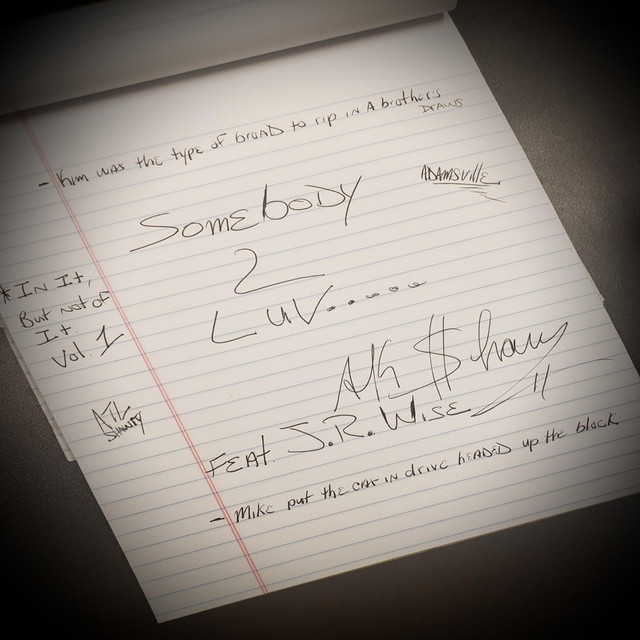 - Kim was the type of broad to rip in A brothers
Draws
ADAMSVILLE
SomEboDy
2
Luv........
* IN It,
But not of
It.
Vol. 1
ATL
Shawty
FEAt. J.R. WisE
- MikE put the car in drive hEADED up the block